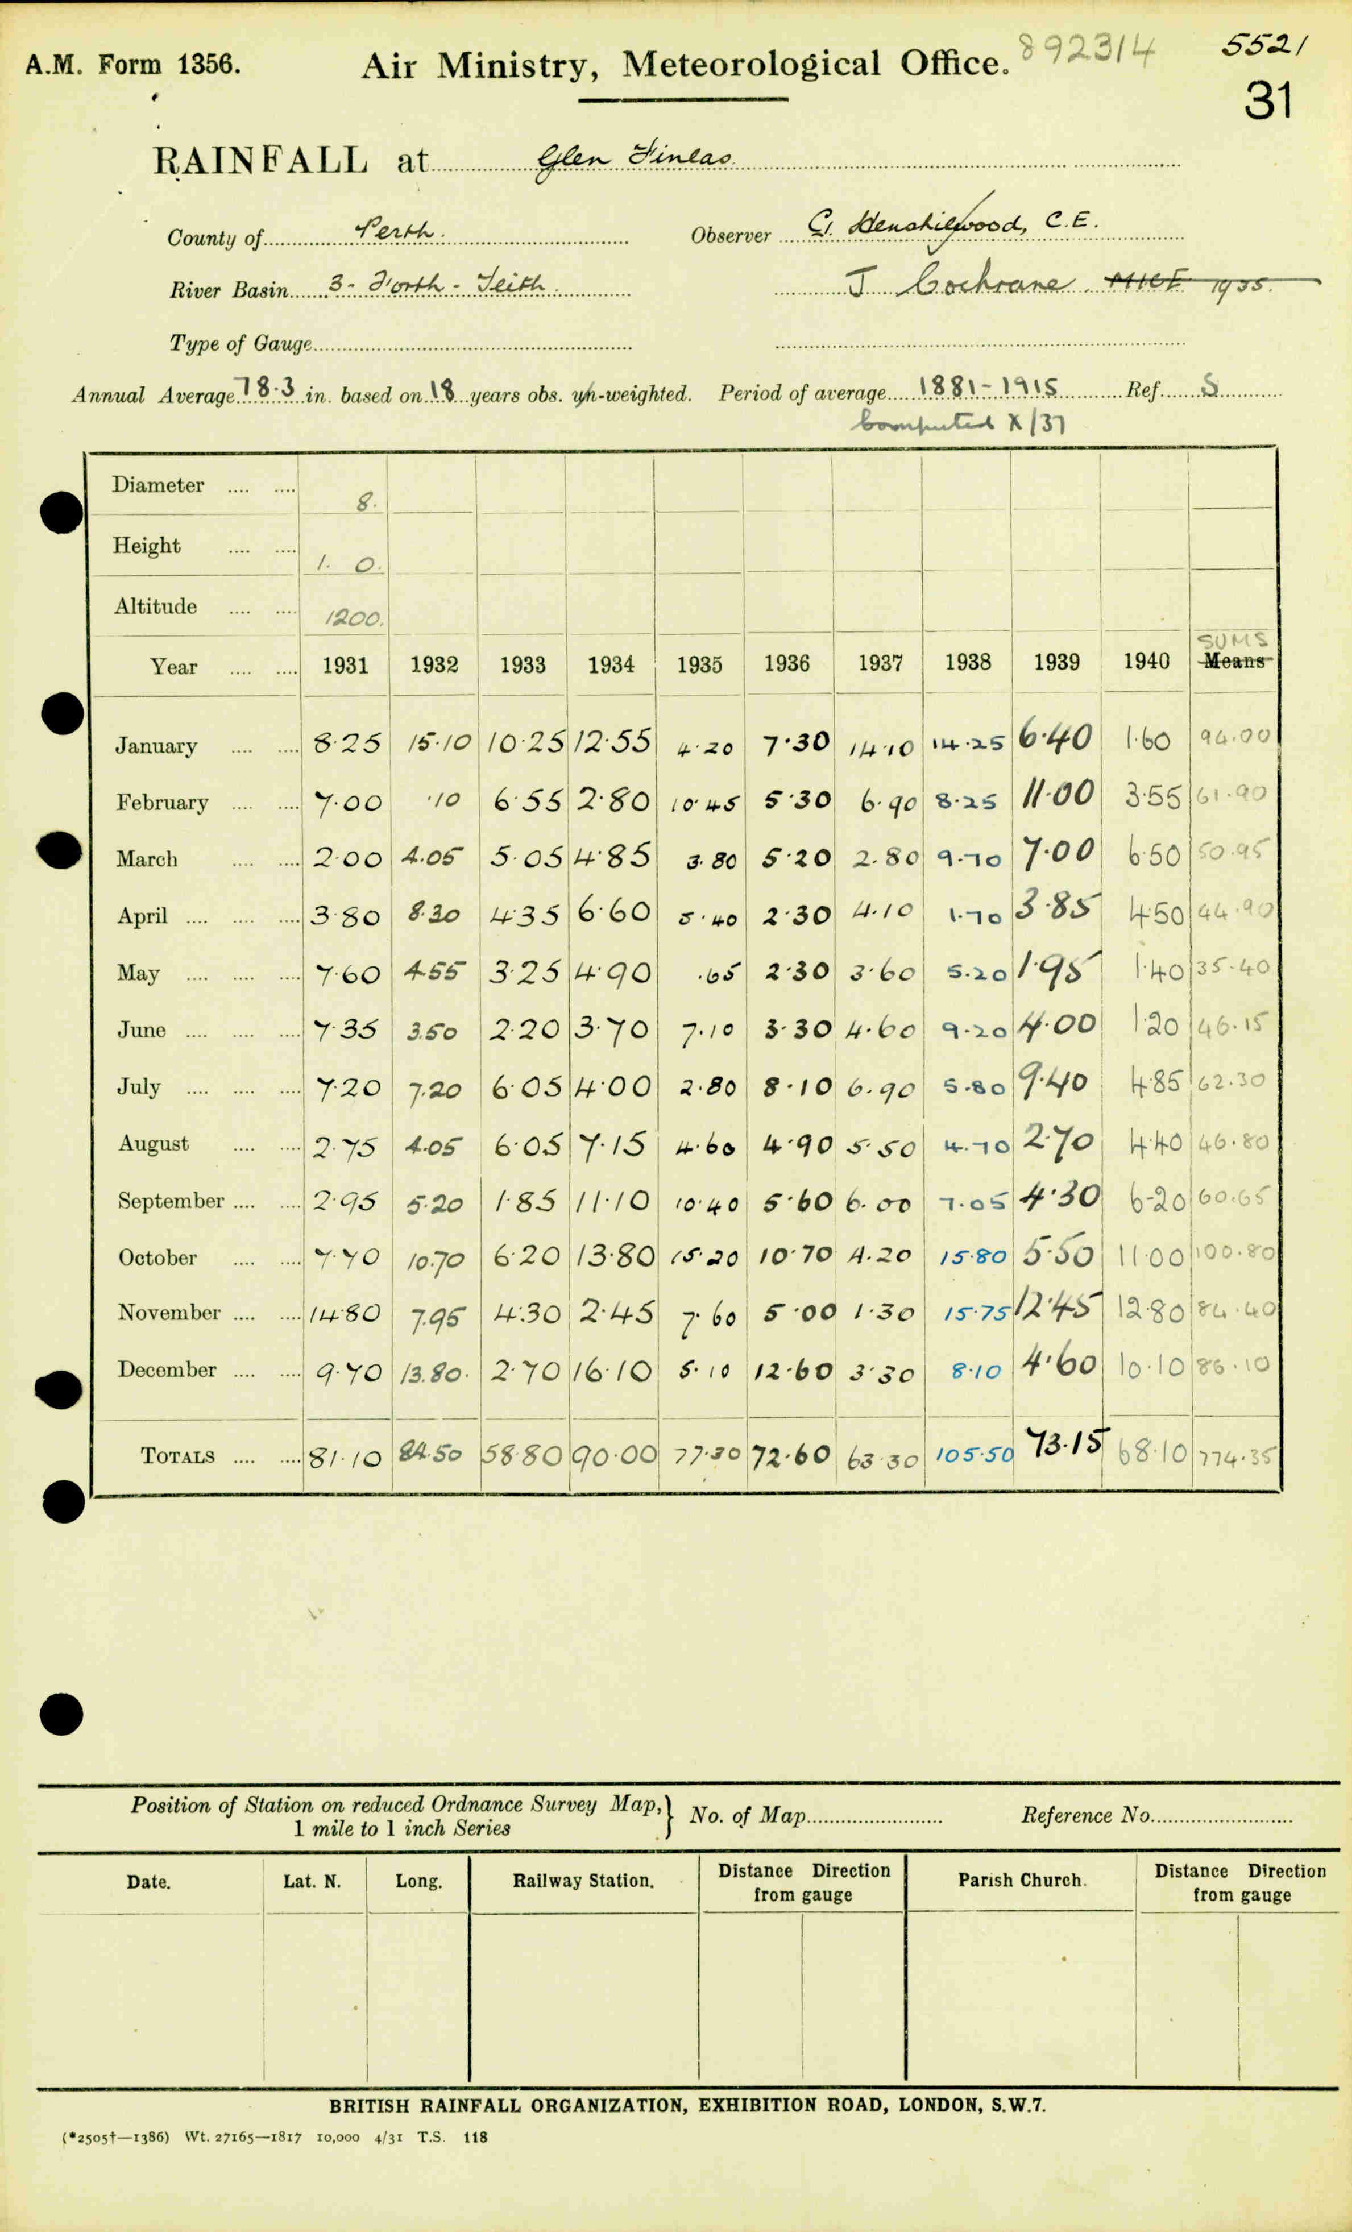 A.M. Form 1356. Air Ministry, Meteorological Office. 892314 5521
31
RAINFALL at Glen Finlas.
County of Perth. Observer G. Henshilwood, C.E.
River Basin 3 - Forth - Teith. J Cochrane. MICE 1935.
Type of Gauge
Annual Average 78.3 in. based on 18 years obs. un-weighted. Period of average 1881-1915 Ref. S
Computed X/37
Diameter .... .... 8.
Height .... .... 1. 0.
Altitude .... .... 1200.
SUMS
Year .... .... 1931 1932 1933 1934 1935 1936 1937 1938 1939 1940 Means
January .... .... 8.25 15.10 10.25 12.55 4.20 7.30 14.10 14.25 6.40 1.60 94.00
February .... .... 7.00 .10 6.55 2.80 10.45 5.30 6.90 8.25 11.00 3.55 61.90
March .... .... 2.00 4.05 5.05 4.85 3.80 5.20 2.80 9.70 7.00 6.50 50.95
April .... .... .... 3.80 8.30 4.35 6.60 5.40 2.30 4.10 1.70 3.85 4.50 44.90
May .... .... .... 7.60 4.55 3.25 4.90 .65 2.30 3.60 5.20 1.95 1.40 35.40
June .... .... .... 7.35 3.50 2.20 3.70 7.10 3.30 4.60 9.20 4.00 1.20 46.15
July .... .... .... 7.20 7.20 6.05 4.00 2.80 8.10 6.90 5.80 9.40 4.85 62.30
August .... .... 2.75 4.05 6.05 7.15 4.60 4.90 5.50 4.70 2.70 4.40 46.80
September .... .... 2.95 5.20 1.85 11.10 10.40 5.60 6.00 7.05 4.30 6.20 60.65
October .... .... 7.70 10.70 6.20 13.80 15.20 10.70 4.20 15.80 5.50 11.00 100.80
November .... .... 14.80 7.95 4.30 2.45 7.60 5.00 1.30 15.75 12.45 12.80 84.40
December .... .... 9.70 13.80. 2.70 16.10 5.10 12.60 3.30 8.10 4.60 10.10 86.10
TOTALS .... .... 81.10 84.50 58.80 90.00 77.30 72.60 63.30 105.50 73.15 68.10 774.35
Position of Station on reduced Ordnance Survey Map, } No. of Map Reference No.
1 mile to 1 inch Series
Date. Lat. N. Long. Railway Station. Distance Direction Parish Church. Distance Direction
from gauge from gauge
BRITISH RAINFALL ORGANIZATION, EXHIBITION ROAD, LONDON, S.W.7.
(*2505†—1386) Wt. 27165—1817 10,000 4/31 T.S. 118